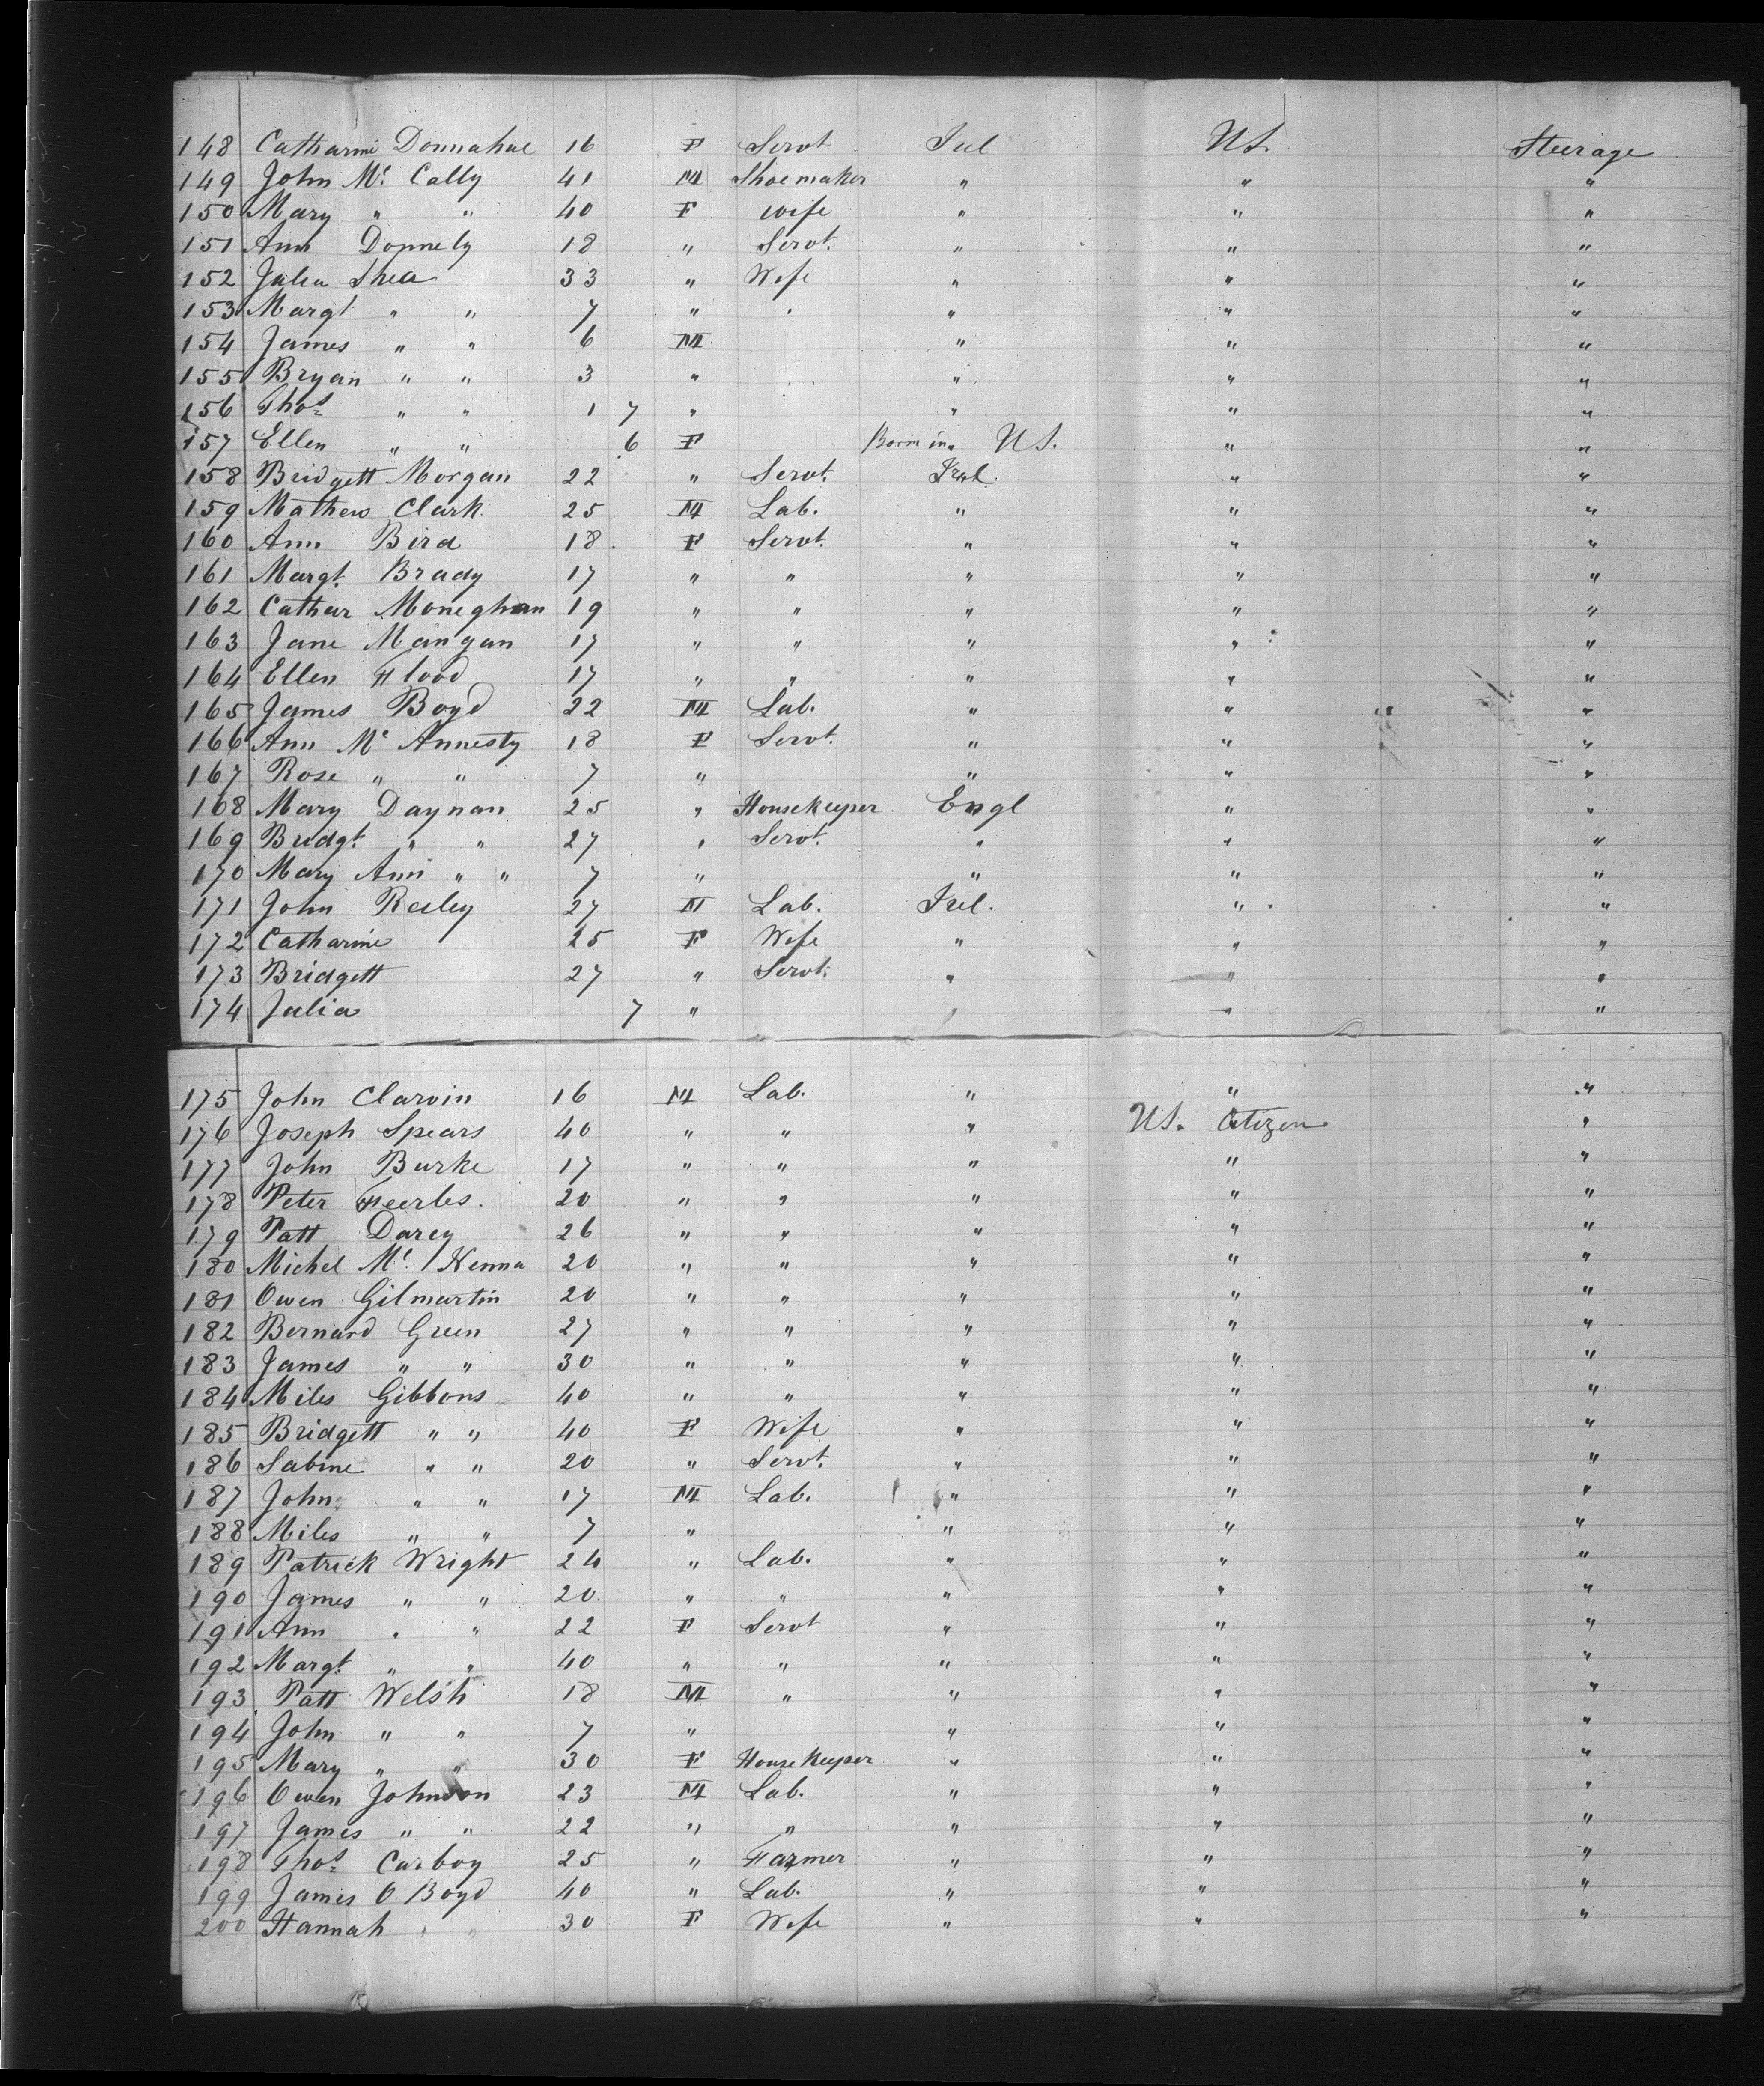 148 Catharine Donnahue 16 F Servt Irel U.S. Steerage
149 John Mc Cally 41 M Shoemaker " " "
150 Mary " " 40 F Wife " " "
151 Ann Donnely 18 " Servt. " " "
152 Julia Shea 33 " Wife " " "
153 Margt " " 7 " " " "
154 James " " 6 M " " "
155 Bryan " " 3 " " " "
156 Thos " " 1 7 " " " "
157 Ellen " " 6 F Born in U.S. " "
158 Bridgett Morgan 22 " Servt. Irel. " "
159 Mathew Clark 25 M Lab. " " "
160 Ann Bird 18 F Servt. " " "
161 Margt. Brady 17 " " " " "
162 Cathar Moneghan 19 " " " " "
163 Jane Mangan 17 " " " " "
164 Ellen Flood 17 " " " " "
165 James Boyd 22 M Lab. " " "
166 Ann Mc Annesty 18 F Servt. " " "
167 Rose " " 7 " " " "
168 Mary Daynan 25 " HouseKeeper Engl " "
169 Bridgt. " " 27 " Servt. " " "
170 Mary Ann " " 7 " " " "
171 John Reiley 27 M Lab. Irel. " "
172 Catharine 25 F Wife " " "
173 Bridgett 27 " Servt. " " "
174 Julia 7 " " " "
175 John Clarvin 16 M Lab. " " "
176 Joseph Spears 40 " " " U.S. Citizen "
177 John Burke 17 " " " " "
178 Peter Feerles. 20 " " " " "
179 Patt Darcy 26 " " " " "
180 Michel Mc Kenna 20 " " " " "
181 Owen Gilmartin 20 " " " " "
182 Bernard Green 27 " " " " "
183 James " " 30 " " " " "
184 Miles Gibbons 40 " " " " "
185 Bridgett " " 40 F Wife " " "
186 Sabine " " 20 " Servt. " " "
187 John " " 17 M Lab. " " "
188 Miles " " 7 " " " "
189 Patrick Wright 24 " Lab. " " "
190 James " " 20 " " " " "
191 Ann " " 22 F Servt " " "
192 Margt. " " 40 " " " " "
193 Patt Welsh 18 M " " " "
194 John " " 7 " " " "
195 Mary " " 30 F HouseKeeper " " "
196 Owen Johnson 23 M Lab. " " "
197 James " " 22 " " " " "
198 Thos Carboy 25 " Farmer " " "
199 James O Boyd 40 " Lab. " " "
200 Hannah " " 30 F Wife " " "